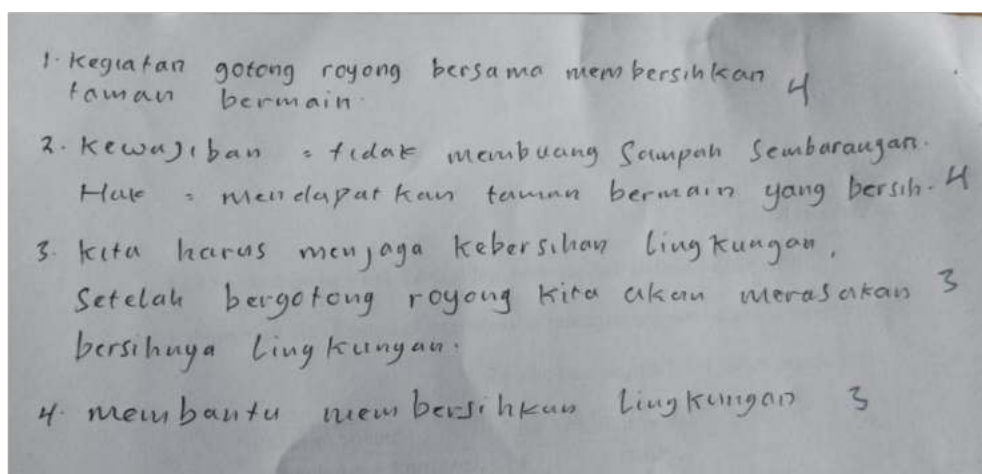 1. Kegiatan gotong royong bersama membersihkan 4
taman bermain.
2. Kewajiban = tidak membuang Sampah Sembarangan.
Hak = mendapatkan taman bermain yang bersih. 4
3. kita harus menjaga kebersihan lingkungan,
Setelah bergotong royong kita akan merasakan 3
bersihnya lingkungan.
4. membantu membersihkan lingkungan 3